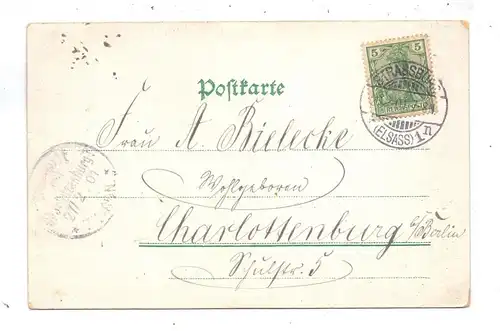 Postkarte
5 5
STRASSBURG
(ELSASS) 1. n
Frau A. Bielecke
Wohlgeboren
Charlottenburg b/Berlin
Schulstr. 5